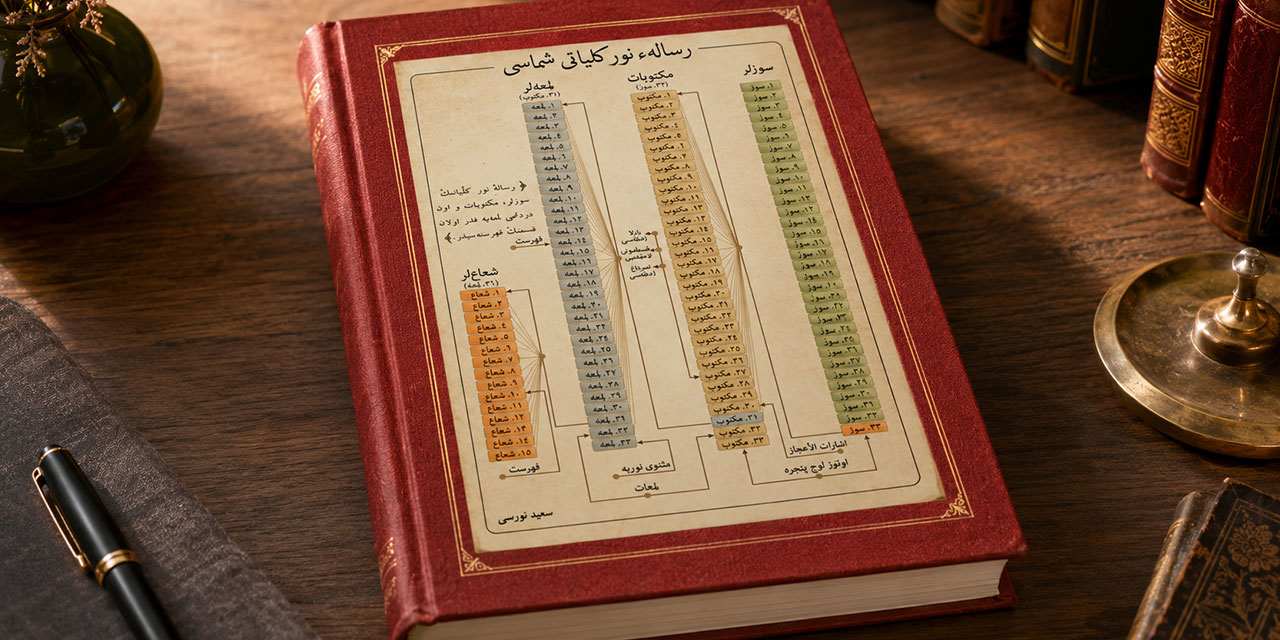 رساله‌ء نور كلیاتی شماسی
سوزلر
١. سوز
٢. سوز
٣. سوز
٤. سوز
٥. سوز
٦. سوز
٧. سوز
٨. سوز
٩. سوز
١٠. سوز
١١. سوز
١٣. سوز
١٢. سوز
١٤. سوز
١٥. سوز
١٦. سوز
١٧. سوز
سوز
١٩. سوز
سوز
سوز
سوز
٣٣. سوز
٢٤. سوز
٢٥. سوز
٣٦. سوز
٣٧. سوز
٢٨. سوز
٢٩. سوز
٣٠. سوز
٣٩. سوز
٣٣. سوز
٣٣. سوز
مكتوبات
(٣٢. سوز)
١. مكتوب
٢. مكتوب
٣. مكتوب
٤. مكتوب
٥. مكتوب
٦. مكتوب
٧. مكتوب
٨. مكتوب
٩. مكتوب
١٠. مكتوب
١١. مكتوب
١٢. مكتوب
١٣. مكتوب
١٤. مكتوب
١٥. مكتوب
١٦. مكتوب
١٧. مكتوب
١٨. مكتوب
١٩. مكتوب
٢٠. مكتوب
٢١. مكتوب
٢٢. مكتوب
٢٣. مكتوب
٢٤. مكتوب
٢٥. مكتوب
٣٦. مكتوب
٢٧. مكتوب
٢٨. مكتوب
٢٩. مكتوب
٣٠. مكتوب
٣١. مكتوب
٣٢. مكتوب
٣٣. مكتوب
لمعه‌لر
(٣١. مكتوب)
١. لمعه
٢. لمعه
٣. لمعه
٤. لمعه
٥. لمعه
٦. لمعه
٧. لمعه
٨. لمعه
٩. لمعه
١٠. لمعه
١١. لمعه
١٢. لمعه
١٣. لمعه
١٤. لمعه
١٥. لمعه
١٦. لمعه
١٧. لمعه
١٨. لمعه
١٩. لمعه
٢٠. لمعه
٢١. لمعه
٢٢. لمعه
٢٤. لمعه
٢٥. لمعه
٣٦. لمعه
٣٧. لمعه
٢٨. لمعه
٢٩. لمعه
٣٠. لمعه
٣٩. لمعه
٣٢. لمعه
٣٣. لمعه
بارلا
لاحقه‌سی
رسالهٔ نور كلّیاتنڭ
سوزلر، مكتوبات و اون
دردنجی لمعه‌یه قدر اولان
قسمنڭ فهرسته‌سیدر.
فهرست
شعاع‌لر
(٣١. لمعه)
١. شعاع
٢. شعاع
٣. شعاع
٤. شعاع
٥. شعاع
٦. شعاع
٧. شعاع
٨. شعاع
٩. شعاع
١٠. شعاع
١١. شعاع
١٢. شعاع
١٣. شعاع
١٤. شعاع
١٥. شعاع
اشارات الأعجاز
اوتوز اوچ پنجره
مثنوی نوریه
لمعات
فهرست
سعید نورسی